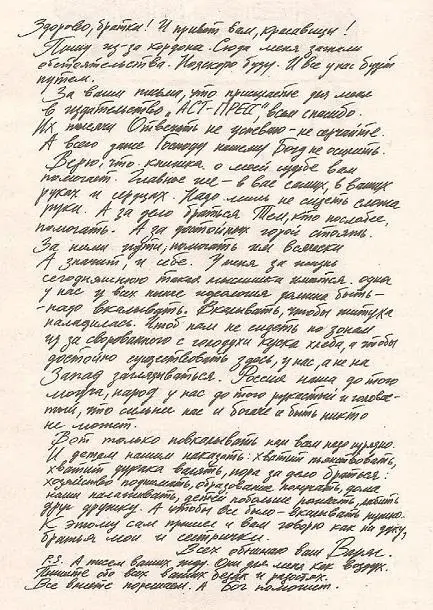 Здорово, братки! И привет вам, красавицы!
Пишу из-за кордона. Сюда меня загнали
обстоятельства. Но скоро буду. И все у нас будет
путем.
За ваши письма, что пришлете для меня
в издательство „АСТ-ПРЕСС", всем спасибо.
Их тысячи. Ответить не успеваю - не серчайте.
А всего даже Господу нашему Богу не осилить.
Верю, что книжка о моей судьбе вам
помогает. Главное же - в вас самих, в ваших
руках и сердцах. Надо лишь не сидеть сложа
руки. А за дело браться. Тем, кто послабее,
помогать. А за достойных горой стоять.
За ними идти, помогать им всячески
А значит, и себе. У меня за жизнь
сегодняшнюю такая мыслишка имеется. Одна
у нас у всех ныне идеология должна быть -
- надо вкалывать. Вкалывать, чтобы житуха
наладилась. Чтоб нам не сидеть по зонам
из-за сворованного с голодухи куска хлеба, а чтобы
достойно существовать здесь, у нас, а не на
Запад заглядываться. Россия наша до того
мощна, народ у нас до того рукастый и головас-
тый, что сильнее нас и богаче быть никто
не может.
Вот только повкалывать нам всем надо изрядно.
И детям нашим наказать: хватит пьянствовать,
хватит дурака валять, пора за дело браться:
хозяйство поднимать, образование получать, дома
наши налаживать, детей побольше рожать, любить
друг дружку. А чтобы все было - вкалывать нужно.
К этому сам пришел и вам говорю как на духу,
братья мои и сестрички.
Всех обнимаю ваш
P.S. А писем ваших жду. Они для меня как воздух.
Пишите обо всех ваших бедах и радостях.
Все вместе порешаем. А Бог поможет.